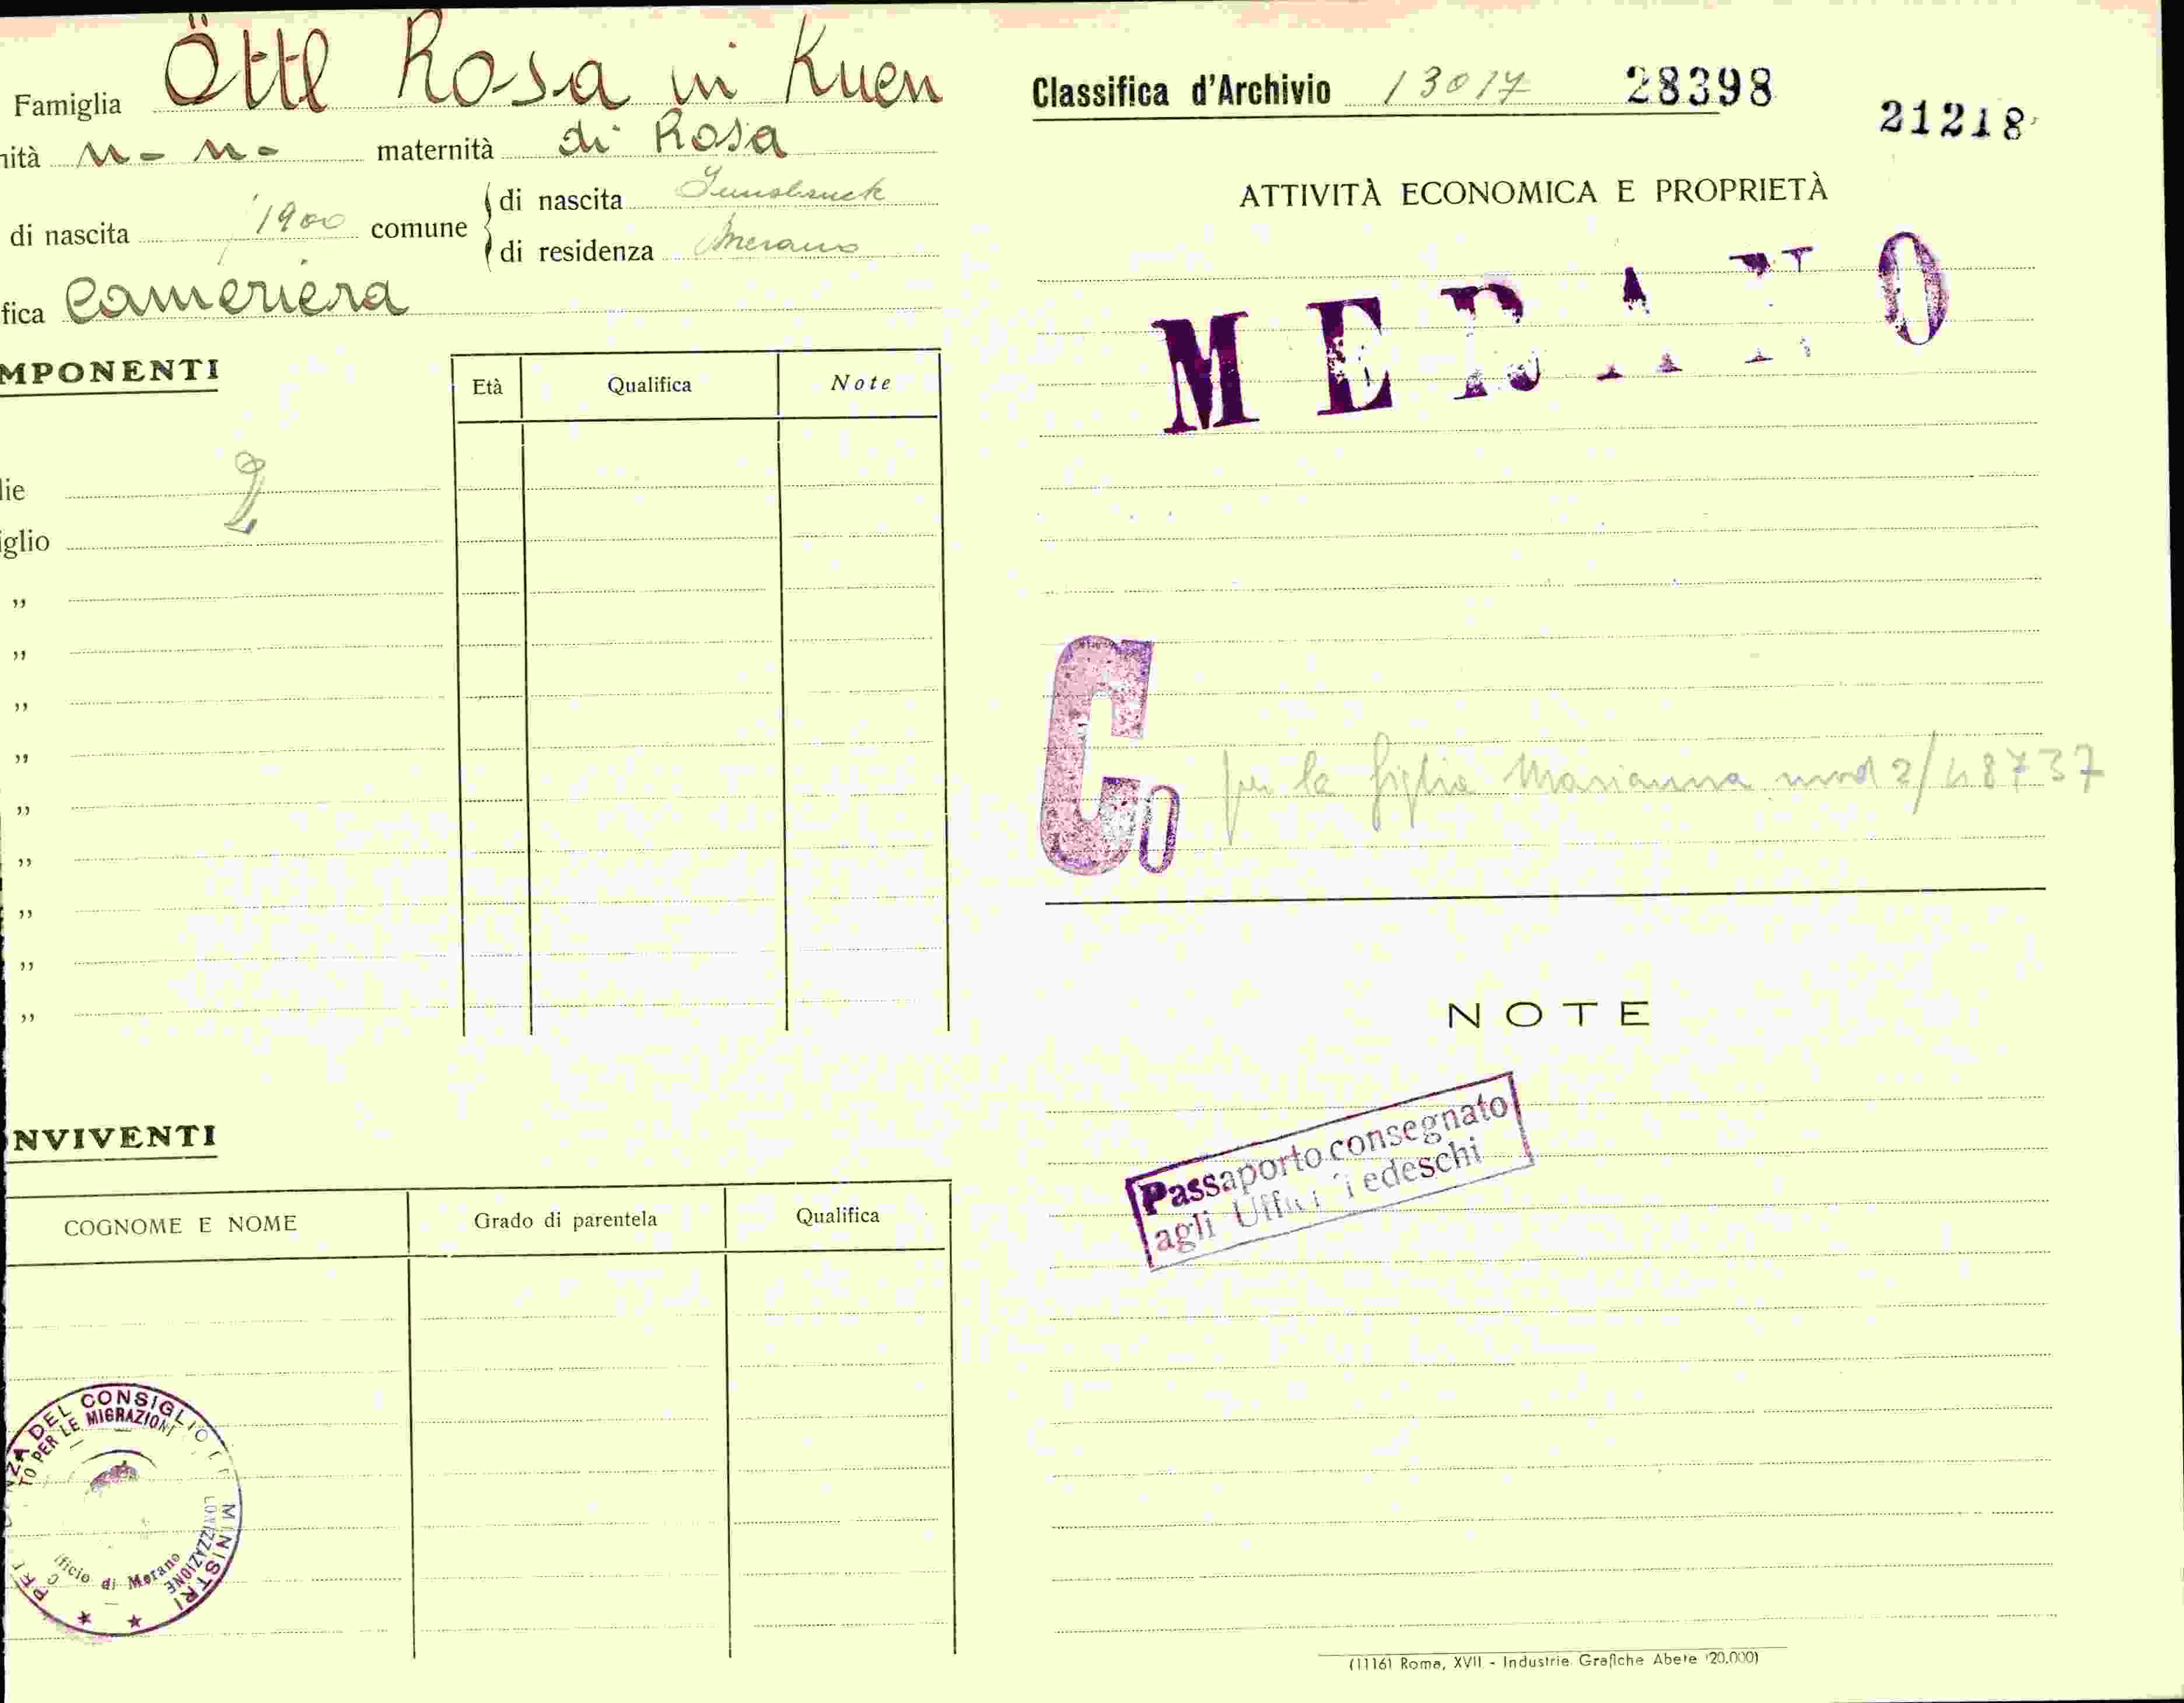 Famiglia Öttl Rosa in Kuen
nità n- n- maternità di Rosa
di nascita 1900 comune
di nascita Innsbruck
di residenza Merano
fica Cameriera
MPONENTI
Età Qualifica Note
lie
iglio
"
"
"
"
"
"
"
"
"
NVIVENTI
COGNOME E NOME Grado di parentela Qualifica
NZA DEL CONSIGLIO DEI MINISTRI
TO PER LE MIGRAZIONI
LONIZZAZIONE
fficio di Merano
Classifica d'Archivio 13017 28398
21218
ATTIVITÀ ECONOMICA E PROPRIETÀ
MERANO
Co per la figlia Marianna mod 2/48737
NOTE
Passaporto consegnato
agli Uffici Tedeschi
(1116) Roma, XVII - Industrie Grafiche Abete (20.000)